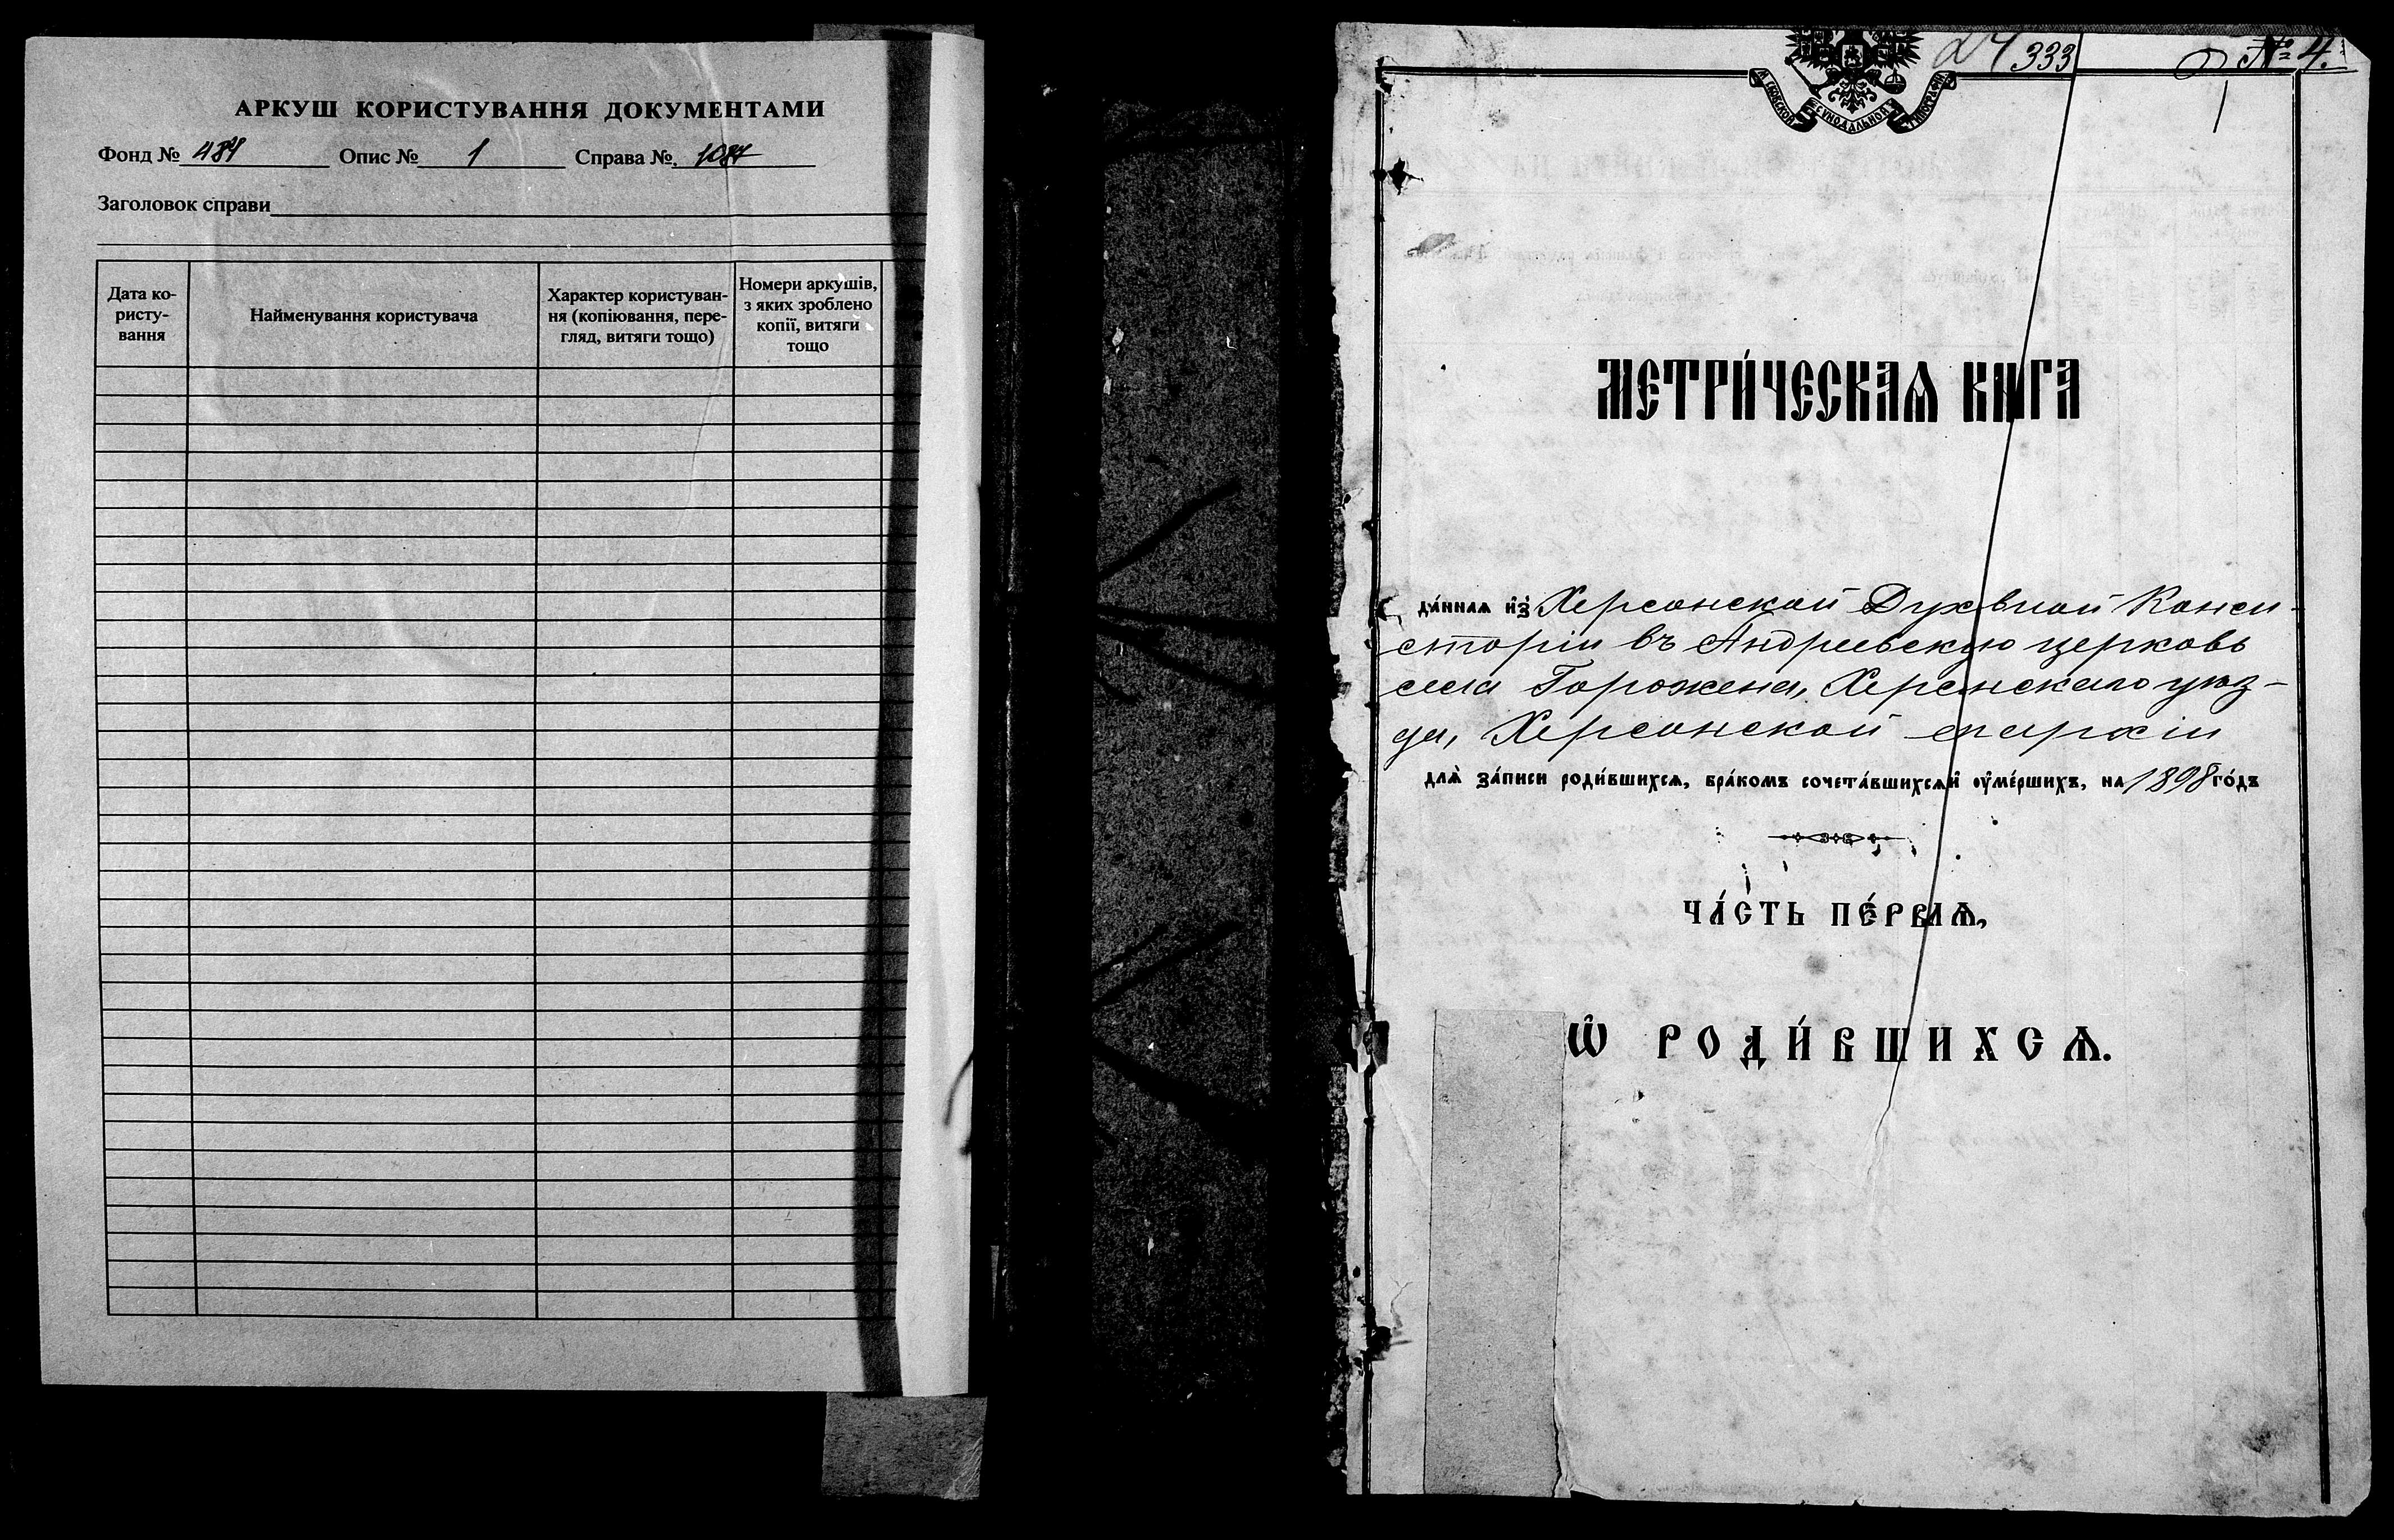 АРКУШ КОРИСТУВАННЯ ДОКУМЕНТАМИ
Фонд № 484 Опис № 1 Справа № 1087
Заголовок справи
Дата ко-
ристу-
вання
Найменування користувача
Характер користуван-
ня (копіювання, пере-
гляд, витяги тощо)
Номери аркушів,
з яких зроблено
копії, витяги
тощо
333
№ 4.
1
МЕТРИ́ЧЕСКАѦ КНИГА
да́ннаѧ и҆з̾ Херсонской Духовной Конси-
сторіи въ Андреевскую церковь
села Горожена, Херсонскаго уѣз-
да, Херсонской епархіи
длѧ̀ за́писи роди́вшихсѧ, бра́комъ сочета́вшихсѧ и҆ ᲂу҆ме́ршихъ, на 1898 го́дъ
ЧА́СТЬ ПЕ́РВАѦ,
Ѽ РОДИ́ВШИХСѦ.